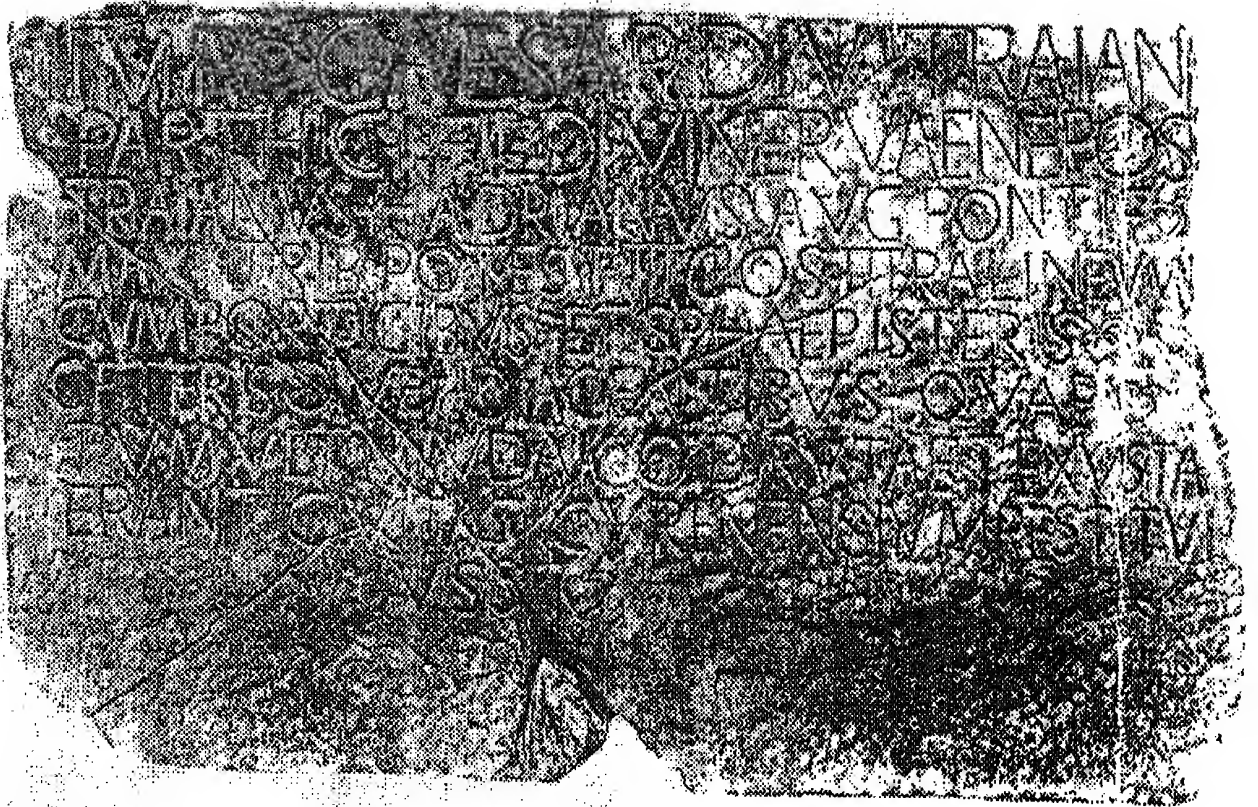 IMP CAESAR DIVI TRAIANI
PARTHICI F DIVI NERVAE NEPOS
TRAIANVS HADRIANVS AVG PONTIF
MAX TRIB POTES III COS III BALINEVM
CVM PORTICIBVS ET SPHAERISTERIS
CETERISQVE ADIACENTIBVS QVAE
TVMVLTV IVDAICO DIRVTA ET EXVSTA
ERANT CIVITATI CYRENENSIVM RESTITVI
IVSSIT